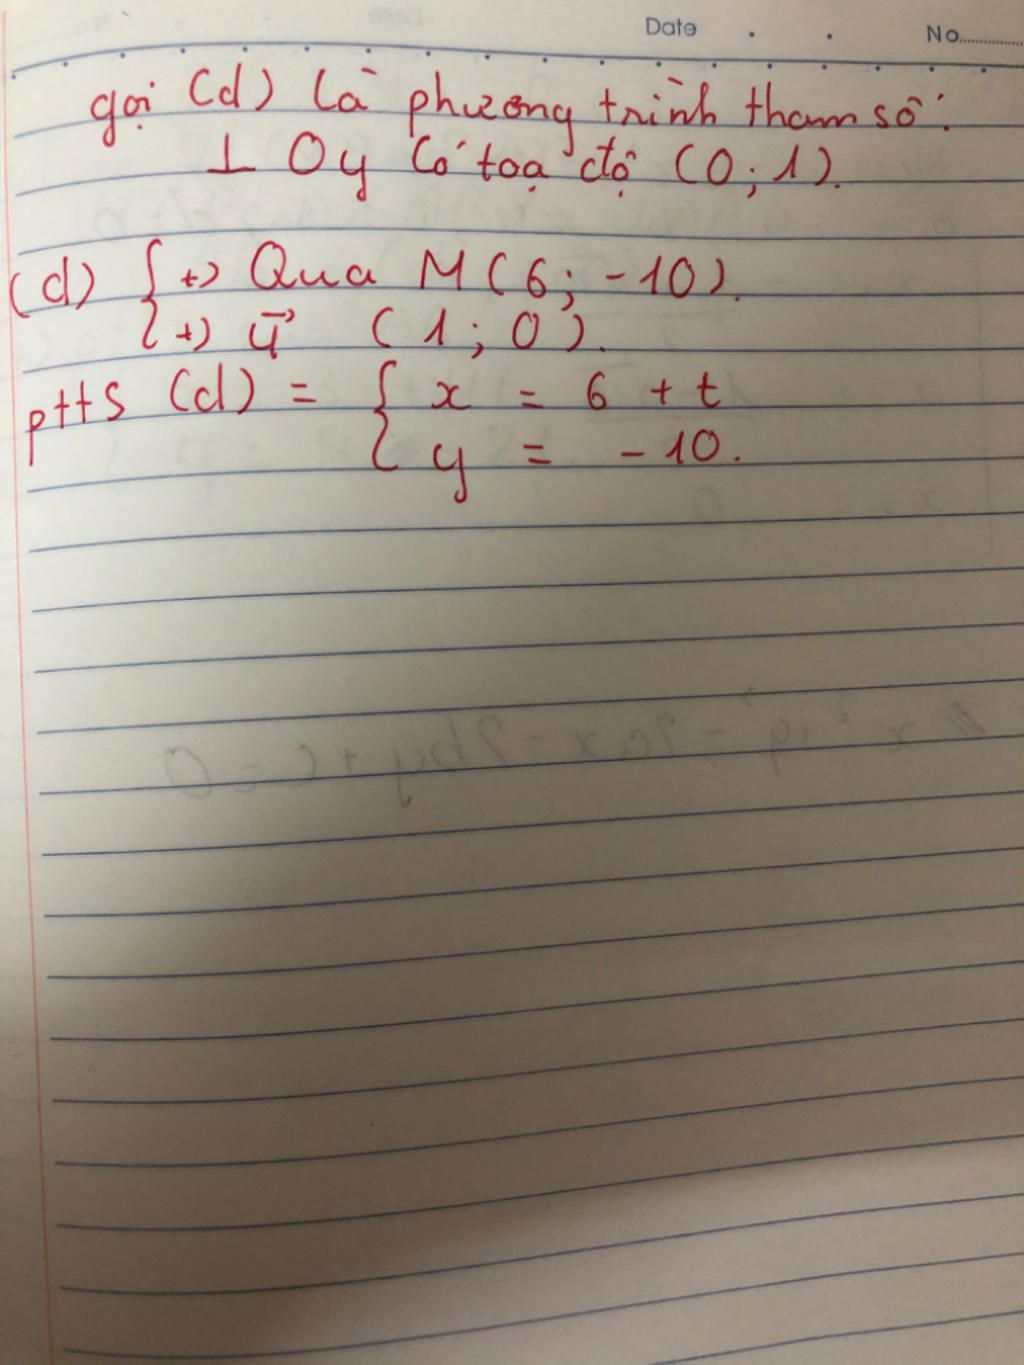 Date
No
gọi (d) là phương trình tham số:
⊥ Oy có toạ độ (0; 1).
(d) { +) Qua M (6; -10).
+) u⃗ (1; 0).
ptts (d) = { x = 6 + t
y = -10.
x² + y² - 2ax - 2by + c = 0